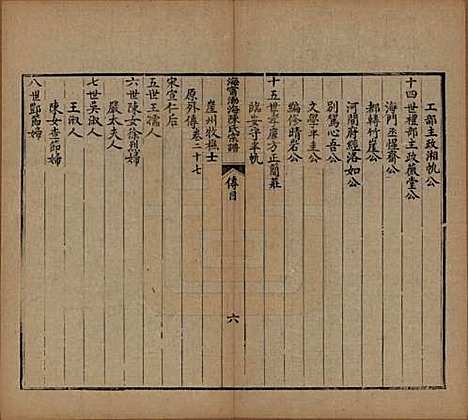 工部主政湘帆公
十四世種部主政薇堂公
海門丞惺齋公
都轉竹崖公
河間府經洛如公
別駕心吾公
文學半圭公
編修晴岩公
十五世孝廉方正蘭莊
臨安守半帆
崖州牧樵士
海寧渤海陳氏宗譜
傳目
六
原外傳卷二十七
宋宣仁后
五世王孺人
六世陳女徐烈婦
嚴太夫人
七世吳淑人
王淑人
陳女查節婦
八世鄭節婦